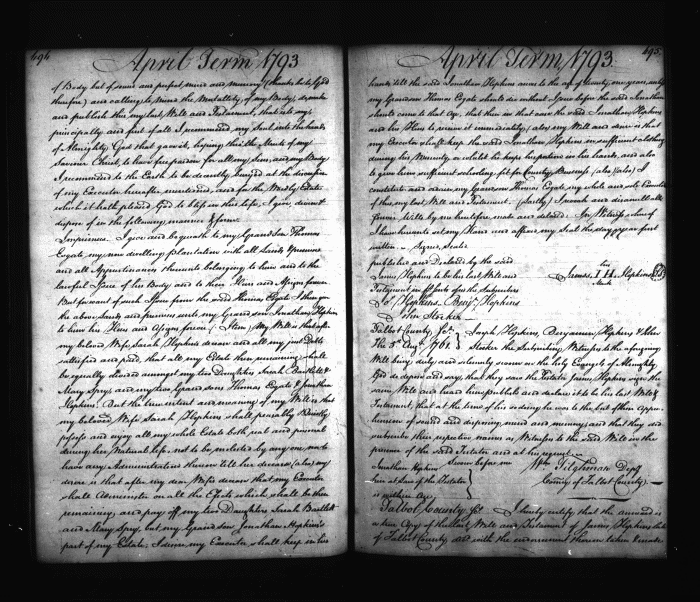 494
April Term 1793
of Body but of sound and perfect mind and memory (thanks be to God
therefore) and calling to Mind the Mortallity of my Body, do make
and publish this my last Will and Testament, that is to say
principally and first of all I recommend my Soul into the hands
of Almighty God that gave it, hoping thro' the Merits of my
Saviour Christ, to have free pardon for all my Sins, and my Body
I recommend to the Earth to be decently buried at the discretion
of my Executor hereafter mentioned, and for the Worldly Estate
which it hath pleased God to bless in this life, I give, devise &
dispose of in the following manner & form
Imprimis. I give and bequeath to my Grand Son Thomas
Cogate my now dwelling plantation with all Lands & premises
and all Appurtenances thereunto belonging to him and to the
lawful Issue of his Body and to their Heirs and Assigns forever
But for want of such Issue from the said Thomas Cogate I then give
the above Lands and premises unto my Grand son Jonathan Hopkins
to him his Heirs and Assigns forever / Item / My Will is that after
my beloved Wife Sarah Hopkins decease and all my just Debts
satisfied and paid, that all my Estate then remaining shall
be equally divided amongst my two Daughters Sarah Bartlett &
Mary Spry, and my two Grand sons Thomas Cogate & Jonathan
Hopkins. But the true intent and meaning of my Will is that
my beloved Wife Sarah Hopkins shall peaceably & quietly
possess and enjoy all my whole Estate both real and personal
during her Natural life, not to be molested by any one, nor to
have any Administration thereon till her decease (also) my
desire is that after my dear Wife's decease that my Executor
shall Administer on all the Effects which shall be then
remaining and pay off my two Daughters Sarah Bartlett
and Mary Spry, but my Grand Son Jonathan Hopkins's
part of my Estate, I desire my Executor shall keep in his
495
April Term 1793.
hands till the said Jonathan Hopkins comes to the age of twenty one years, and if
my Grandson Thomas Cogate should die without Issue before the said Jonathan
should come to that Age, that then in that case the said Jonathan Hopkins
and his Heirs to receive it immediately (also) my Will and desire is that
my Executor shall keep the said Jonathan Hopkins in sufficient clothing
during his Minority or whilst he keeps his portion in his hands, and also
to give him sufficient schooling fit for Country Business (also) (also) I
constitute and ordain my Grandson Thomas Cogate my whole and sole Executor
of this my last Will and Testament. (Lastly) I revoke and disannull all
former Wills by me heretofore made and declared. In Witness whereof
I have hereunto set my Hand and affixed my Seal the day & year first
written. Signed, Sealed
published and Declared by the said
James Hopkins to be his last Will and
Testament in the presence of the Subscribers
his
James I H Hopkins
Mark
Jos. Hopkins. Benj. Hopkins
John Stoker
Talbot County Sct. Joseph Hopkins, Benjamin Hopkins & John
The 3rd Augt. 1761 Stoker the Subscribing Witnesses to the aforegoing
Will being duly and solemnly sworn on the holy Evangels of Almighty
God do depose and say, that they saw the Testator James Hopkins sign the
same Will and heard him publish and declare it to be his last Will &
Testament, that at the time of his so doing he was to the best of their Appre-
hension of sound and disposing mind and memory; and that they did
subscribe their respective names as Witnesses to the said Will in the
presence of the said Testator and at his request.
Jonathan Hopkins Sworn before me Wm. Tilghman Depty
heir at Law of the Testator Comry of Talbot County
is within Age
Talbot County Sct I hereby certify that the annexed is
a true Copy of the last Will and Testament of James Hopkins late
of Talbot County decd with the endorsement thereon taken & made